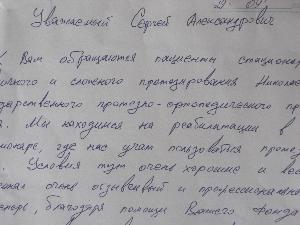 Уважаемый Сергей Александрович
К Вам обращаются пациенты стационар
ичного и сложного протезирования Николае
ударственного протезно-ортопедического пр
а. Мы находимся на реабилитации в
ионаре, где нас учат пользоваться протез
. Условия тут очень хорошие и вес
онал очень отзывчивый и профессиональн
теперь, благодаря помощи Вашего Фонда